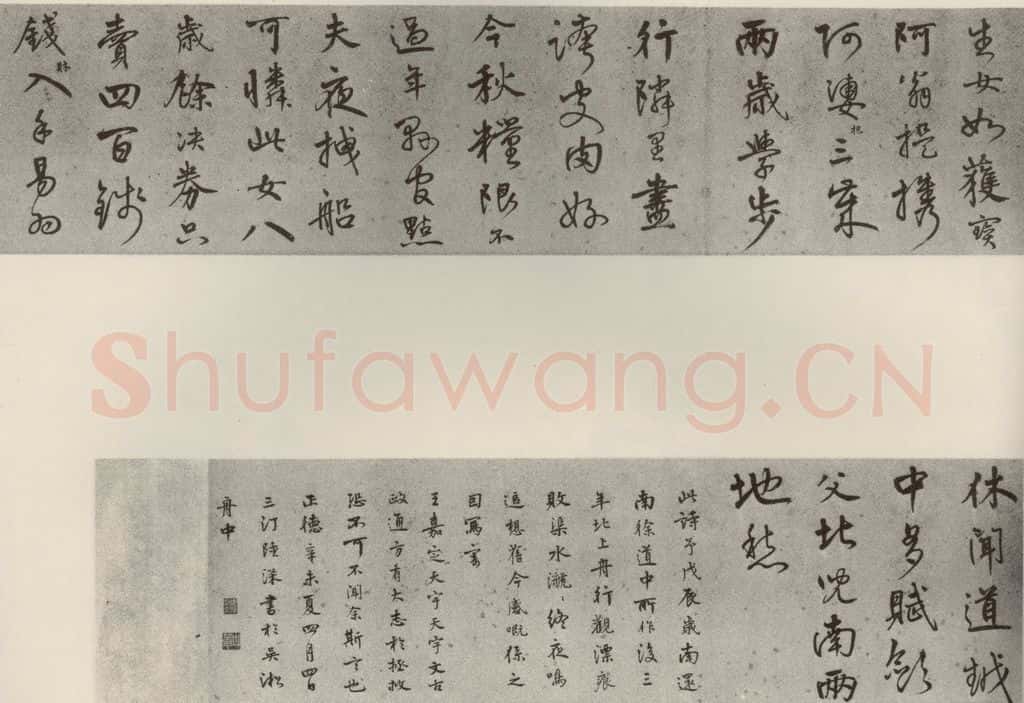 生女如獲寶
阿翁提攜
阿婆抱三
兩歲學步
行隣里盡
誇皮肉好
今秋糧限不
過年縣官點
夫夜拽船
可憐此女八
歲餘決券只
賣四百錢
錢財入手易
Shufawang.CN
休聞道越
中多賦斂
父北兒南兩
地愁
此詩予戊辰歲南還
南徐道中所作後三
年北上舟行觀漂
敗渠水濺濺終夜鳴
追想舊今感慨係之
因寫寄
王嘉定天宇天宇文古
政通方有大志於拯救
恐不可不聞余斯言也
正德辛未夏四月四日
三汀陸深書於吳淞
舟中